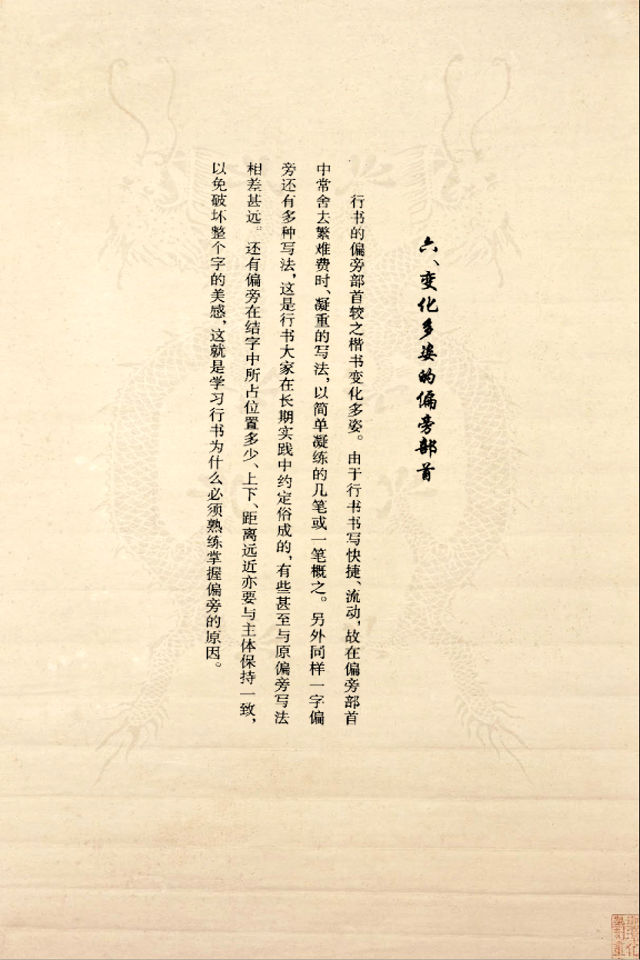 六、变化多姿的偏旁部首
行书的偏旁部首较之楷书变化多姿。由于行书书写快捷、流动，故在偏旁部首
中常舍去繁难费时、凝重的写法，以简单凝练的几笔或一笔概之。另外同样一字偏
旁还有多种写法，这是行书大家在长期实践中约定俗成的，有些甚至与原偏旁写法
相差甚远。还有偏旁在结字中所占位置多少、上下、距离远近亦要与主体保持一致，
以免破坏整个字的美感，这就是学习行书为什么必须熟练掌握偏旁的原因。